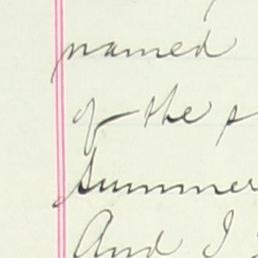 named
of the
Summer
And I